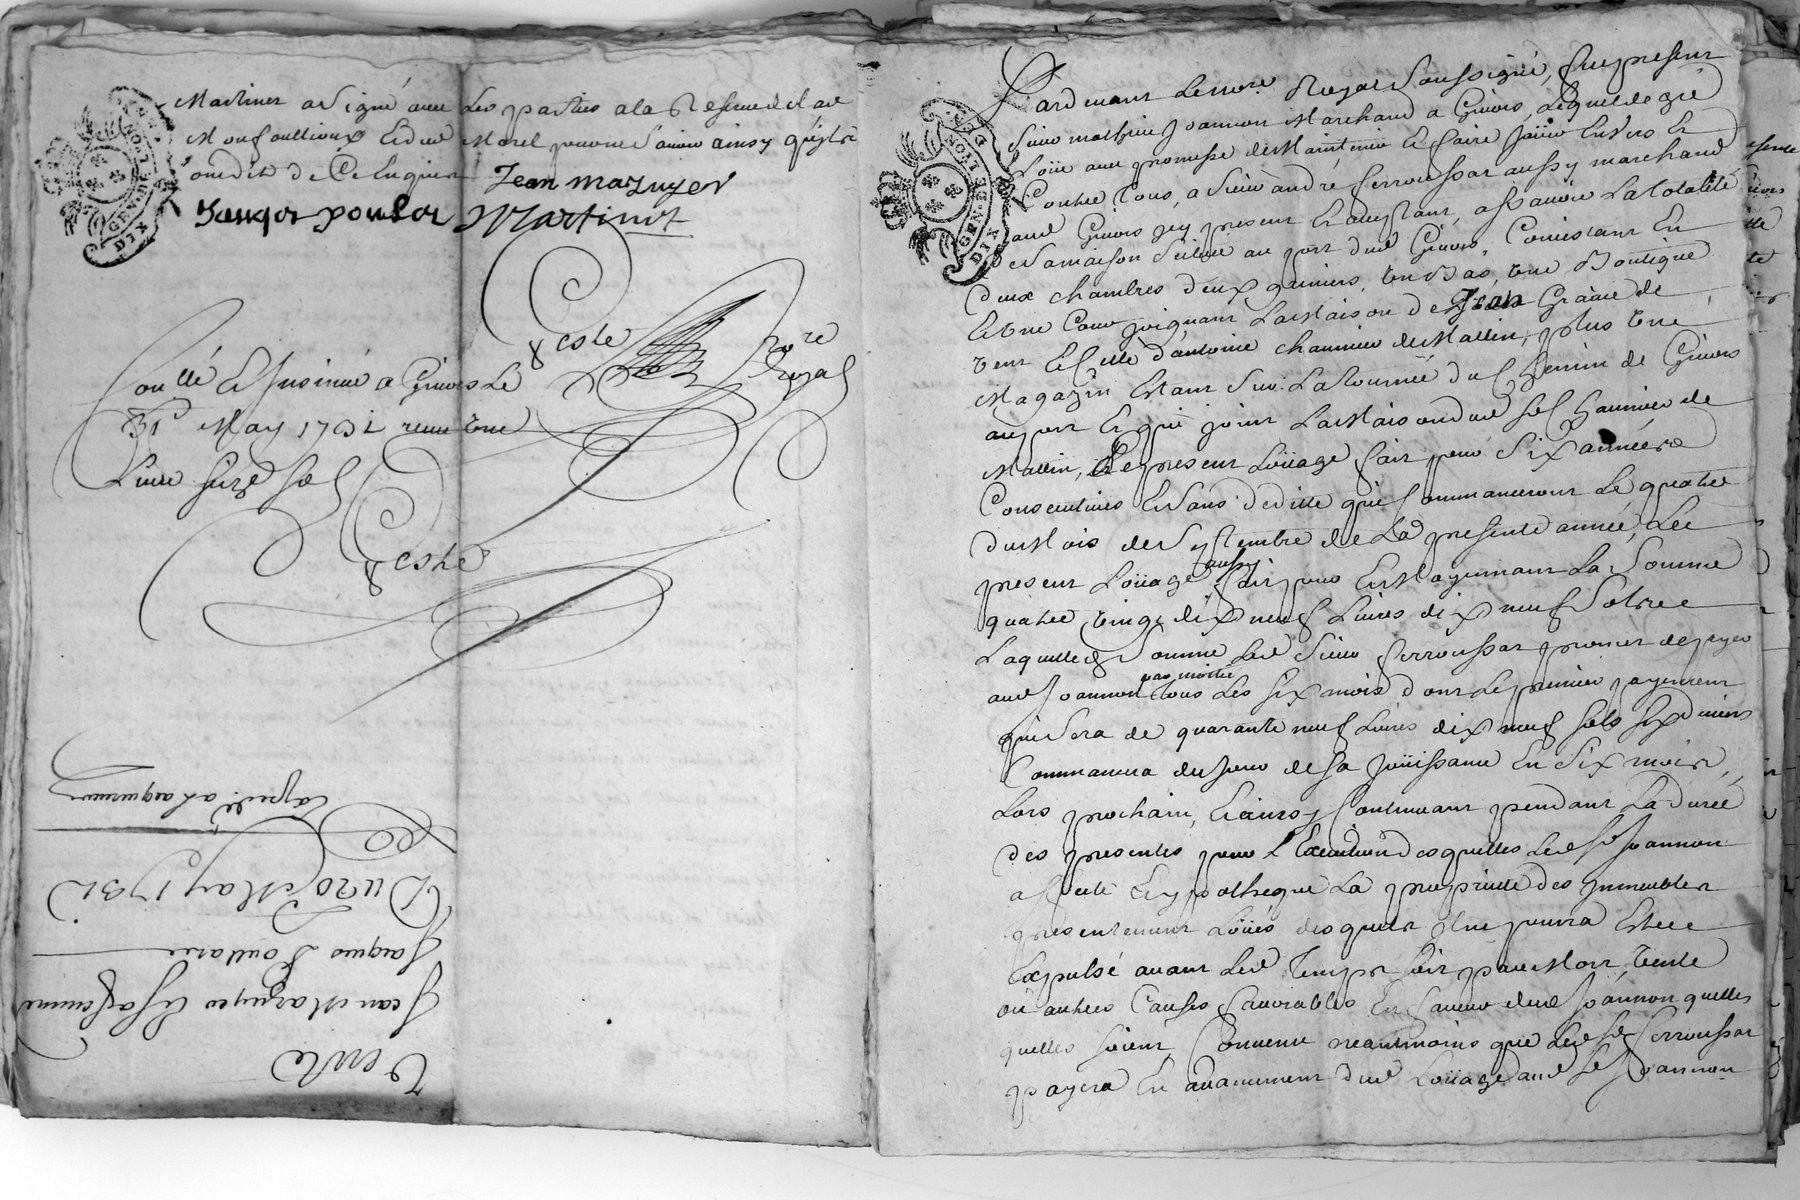 Martinot a signé avec les parties a la Reserve de lad
Monfoullioux et dud Morel pour ne sçavoir ainsy qu'ils
ont dit de ce enquis
Jean mazuyer
Jauqer poulor Martinot
Coste
Nore
Royal
Conllé et Insinué a Givors Le
31e May 1731 receu une
Livre seize sol
Coste
Vente
Jean Mazuyer et sa femme
Jacques Poulard
Du 20 May 1731
Expedié a L'acquereur
GEN. DE LYON
DIX D EN
Pardevant Le nore Royal soussigné, fut present
sieur mathieu Joannon Marchand a Givors, Lequel de gré
Loüe avec promesse de Maintenir et faire Jouir Envers Et
Contre tous, a sieur andré ferroussat aussy marchand
aud Givors icy present Et acceptant, assavoir La totalité
de sa maison située au port dud Givors, Consistant En
deux chambres deux greniers, un bas une Boutique
et une Cour joignant La Maison de Jean
et Celle d'antoine chaumier de Mallin, plus une
Magazin Etant sur La tournée du Chemin de Givors
au port Et qui joint La Maison dud sr Chaumier de
Mallin, Le present Loüage fait pour Six années
Consecutives Et sans deditte qui Commanceront Le quatre
du Mois de Septembre de La presente année, Le
present Loüage aussy fait pour Et Moyennant La Somme
quatre vingt dix neuf Livres dix neuf sols
Laquelle Somme Led Sieur ferroussat promet de payer
aud Joannon par moitié tous Les six mois dont Le premier payement
qui sera de quarante neuf Livres dix neuf sols six deniers
Commancera du jour de sa Joüissance En six mois,
Lors prochain, Et ainsy Continuant pendant La durée
des presentes pour L'Execution desquelles Led sr Joannon
affecte Et ypotheque La proprieté des Immeubles
presentement Loüés desquels il ne pourra Estre
Expulsé avant Led Temps soit par Mort, Vente
ou autres Causes favorables En faveur dud Joannon quelles
quelles soient, Convenu neanmoins que Led sr ferroussat
payera En avancement dud Loüage aud sr Joannon